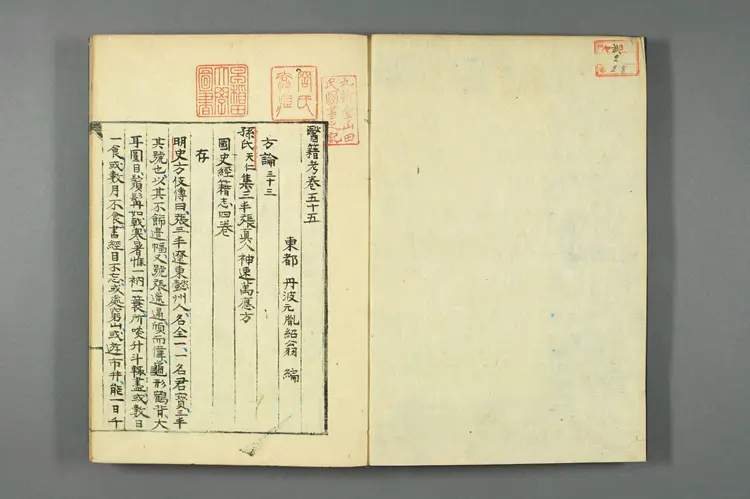 醫籍考卷五十五
東都 丹波元胤紹翁 編
方論三十三
孫氏天仁集三丰張眞人神速萬應方
國史經籍志四卷
存
明史方伎傳曰張三丰遼東懿州人名全一一名君寳三丰
其號也以其不飾邊幅又號張邋遢頎而偉龜形鶴背大
耳圓目鬚髯如戟寒暑惟一衲一蓑所啖升斗輒盡或數日
一食或數月不食書經目不忘或處窮山或遊市井能一日千
早稻田大學圖書